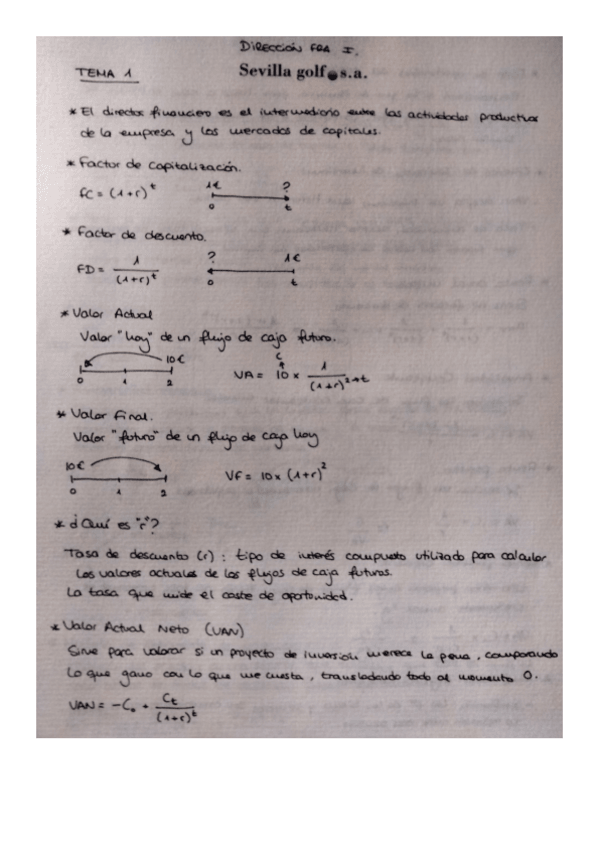 DIRECCIÓN FRA I.
TEMA 1
Sevilla golf s.a.
* El director financiero es el intermediario entre las actividades productivas
de la empresa y los mercados de capitales.
* Factor de capitalización.
FC = (1+r)^t
1€ ?
0 t
* Factor de descuento.
FD = 1 / (1+r)^t
? 1€
0 t
* Valor Actual
Valor "hoy" de un flujo de caja futuro.
10€
0 1 2
C
VA = 10 x 1 / (1+r)^2→t
* Valor Final.
Valor "futuro" de un flujo de caja hoy
10€
0 1 2
VF = 10 x (1+r)^2
* ¿Qué es "r"?
Tasa de descuento (r) : tipo de interés compuesto utilizado para calcular
los valores actuales de los flujos de caja futuros.
La tasa que mide el coste de oportunidad.
* Valor Actual Neto (VAN)
Sirve para valorar si un proyecto de inversión merece la pena, comparando
lo que gano con lo que me cuesta, trasladando todo al momento 0.
VAN = -C₀ + Ct / (1+r)^t